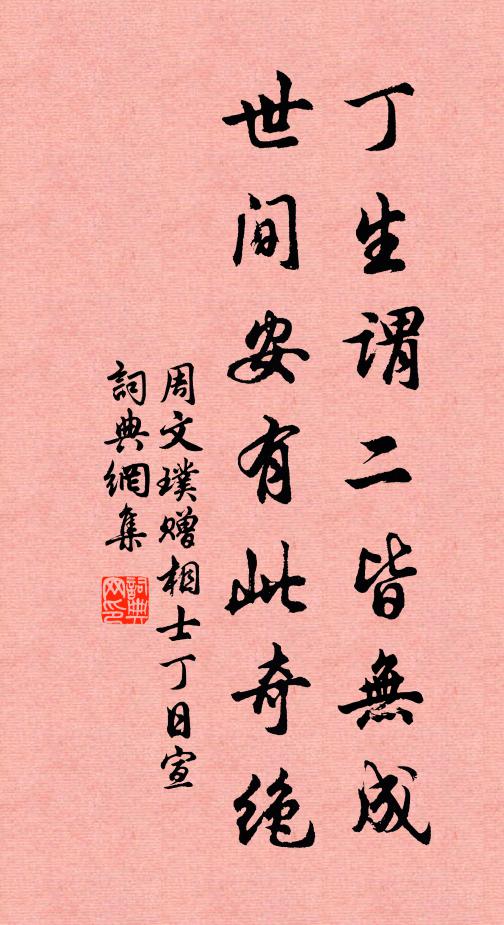 丁生謂二皆無成
世間安有此奇絶
周文璞赠相士丁日宣
詞典網集
詞典网印